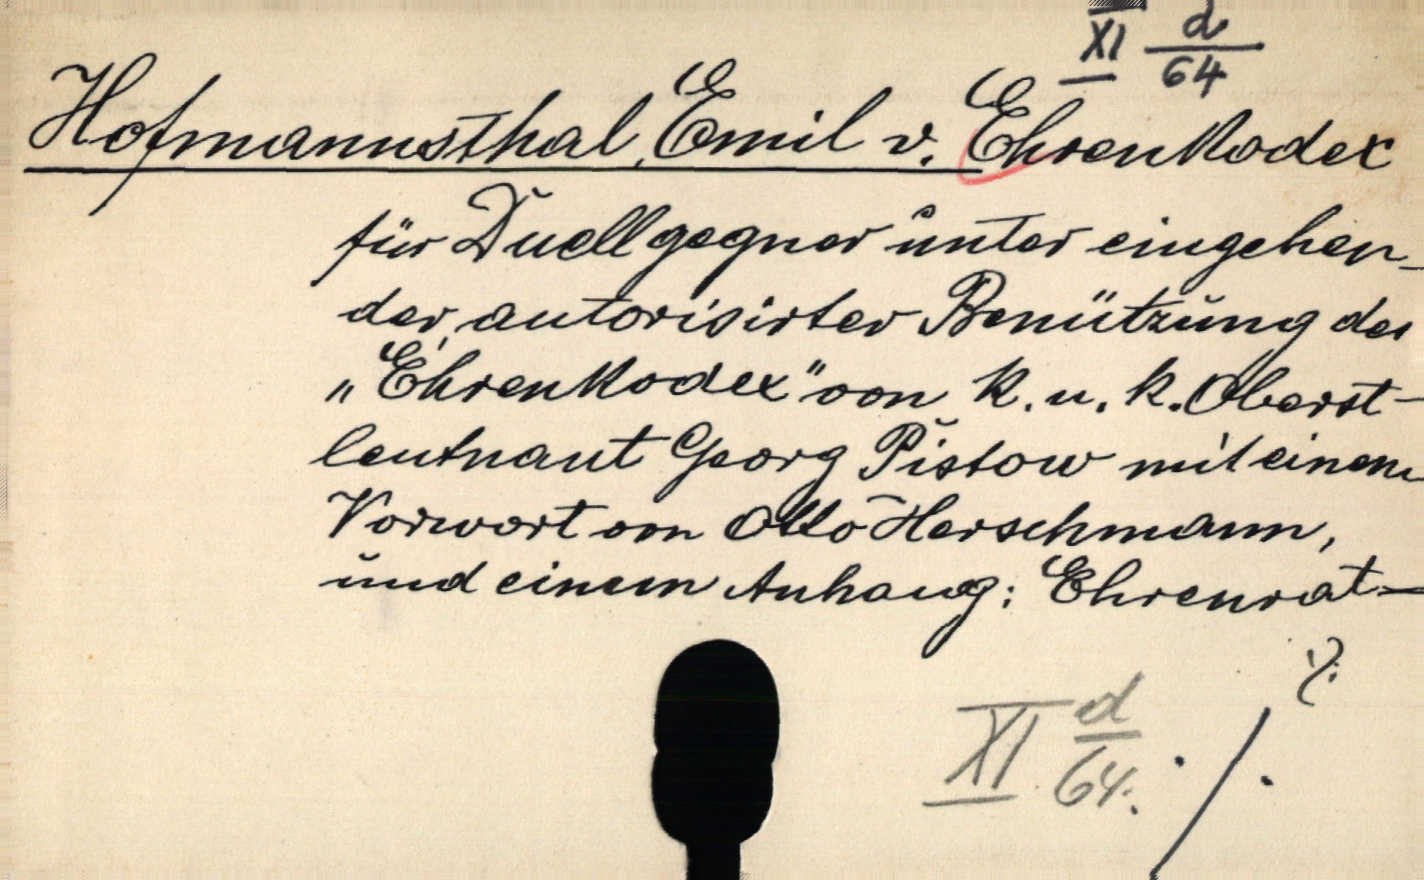 XI d/64
Hofmannsthal, Emil v. Ehrenkodex
für Duellgegner unter eingehen-
der, autorisirter Benützung des
„Ehrenkodex" von k. u. k. Oberst-
leutnant Georg Ristow mit einem
Vorwort von Otto Herschmann,
und einem Anhang: Ehrenrat-
XI d/64. ./.